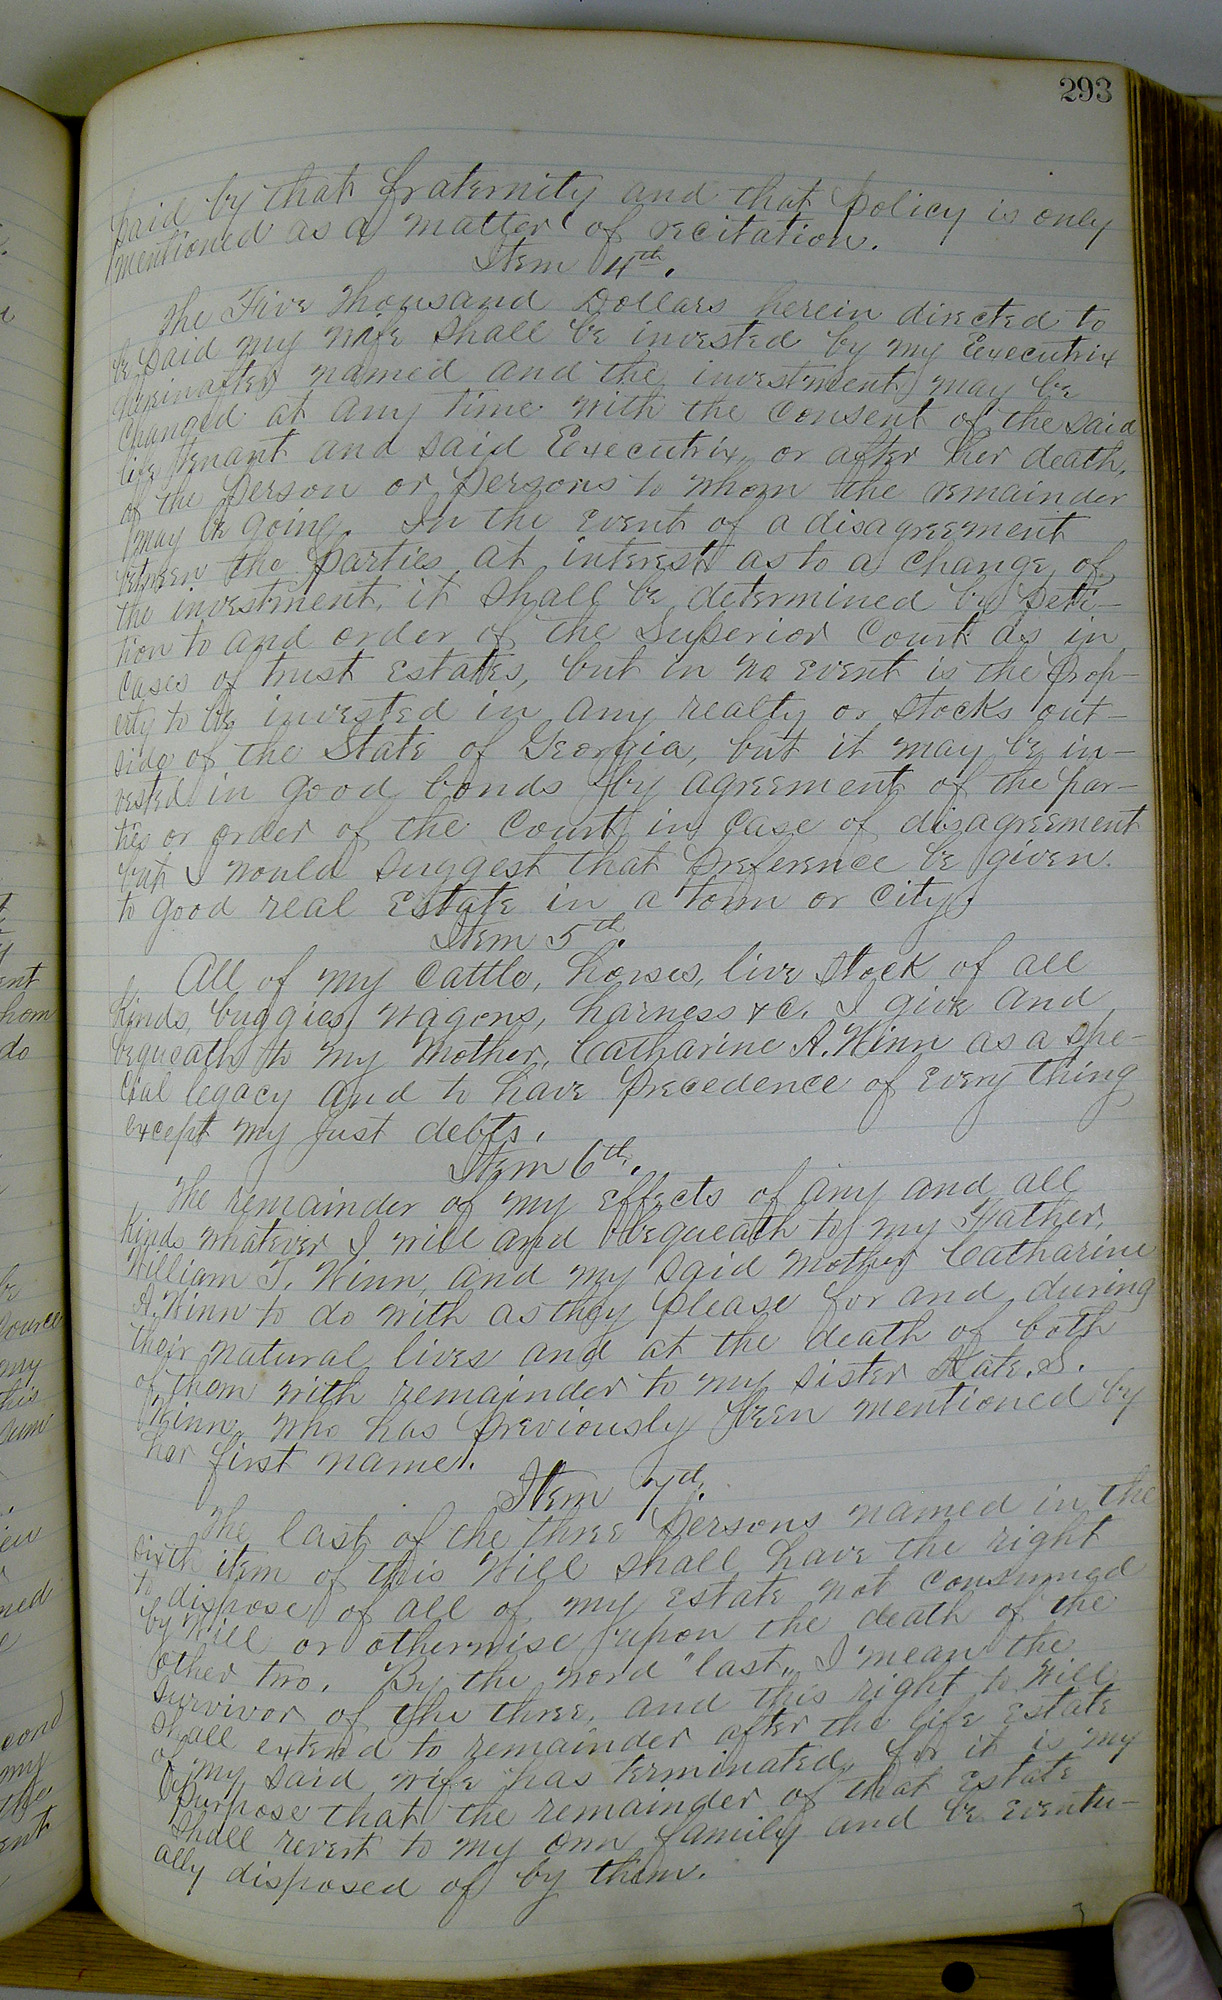 293
paid by that fraternity and that policy is only
mentioned as a matter of recitation.
Item 4th.
The Five Thousand Dollars herein directed to
be paid my wife shall be invested by my Executrix
hereinafter named and the investment may be
changed at any time with the consent of the said
life tenant and said Executrix, or after her death,
of the person or persons to whom the remainder
may be going. In the event of a disagreement
between the parties at interest as to a change of
the investment, it shall be determined by peti-
tion to and order of the Superior Court as in
cases of trust estates, but in no event is the prop-
erty to be invested in any realty or stocks out-
side of the State of Georgia, but it may be in-
vested in good bonds by agreement of the par-
ties or order of the Court in case of disagreement
but I would suggest that preference be given
to good real estate in a town or city.
Item 5th.
All of my cattle, horses, live stock of all
kinds, buggies, wagons, harness &c. I give and
bequeath to my mother, Catharine A. Winn as a spe-
cial legacy and to have precedence of every thing
except my just debts.
Item 6th.
The remainder of my effects of any and all
kinds whatever I will and bequeath to my Father,
William J. Winn, and my said mother Catharine
A. Winn to do with as they please for and during
their natural lives and at the death of both
of them with remainder to my sister Kate. S.
Winn, who has previously been mentioned by
her first name.
Item 7d.
The last of the three persons named in the
sixth item of this Will shall have the right
to dispose of all of my estate not consumed
by Will or otherwise upon the death of the
other two. By the word "last", I mean the
survivor of the three, and this right to will
shall extend to remainder after the life estate
of my said wife has terminated, for it is my
purpose that the remainder of that estate
shall revert to my own family and be eventu-
ally disposed of by them.
ent
hom
do
ource
my
his
sum
med
cond
my
the
ent